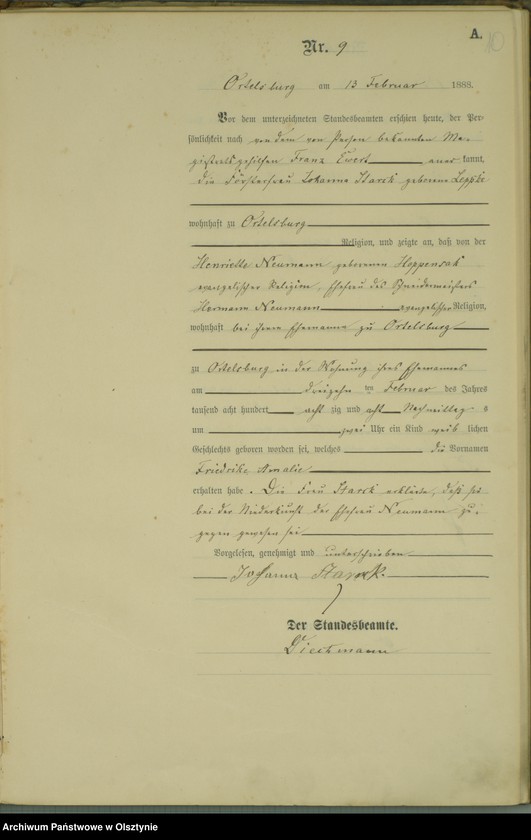 A.
10
Nr. 9
Ortelsburg am 13 Februar 1888.
Vor dem unterzeichneten Standesbeamten erschien heute, der Per-
sönlichkeit nach von dem von Person bekannten Ma-
gistratsgehilfen Franz Ewert anerkannt,
die Försterfrau Johanna Starck geborene
wohnhaft zu Ortelsburg
Religion, und zeigte an, daß von der
Henriette Neumann geborenen Hoppensak
evangelischer Religion, Ehefrau des Schneidermeisters
Hermann Neumann evangelischer Religion,
wohnhaft bei ihrem Ehemanne zu Ortelsburg
zu Ortelsburg in der Wohnung ihres Ehemannes
am dreizehn ten Februar des Jahres
tausend acht hundert acht zig und acht Nachmittag s
um zwei Uhr ein Kind weib lichen
Geschlechts geboren worden sei, welches die Vornamen
Friedrike Amalie
erhalten habe. Die Frau Starck erklärte, daß sie
bei der Niederkunft der Ehefrau Neumann zu-
gegen gewesen sei
Vorgelesen, genehmigt und unterschrieben
Johanna Starck.
Der Standesbeamte.
Dieckmann
Archiwum Państwowe w Olsztynie